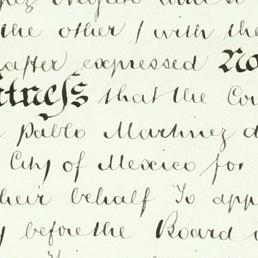 the other / with the
after expressed No
itness that the Co
Pablo Martinez d
City of Mexico for
their behalf To app
before the Board